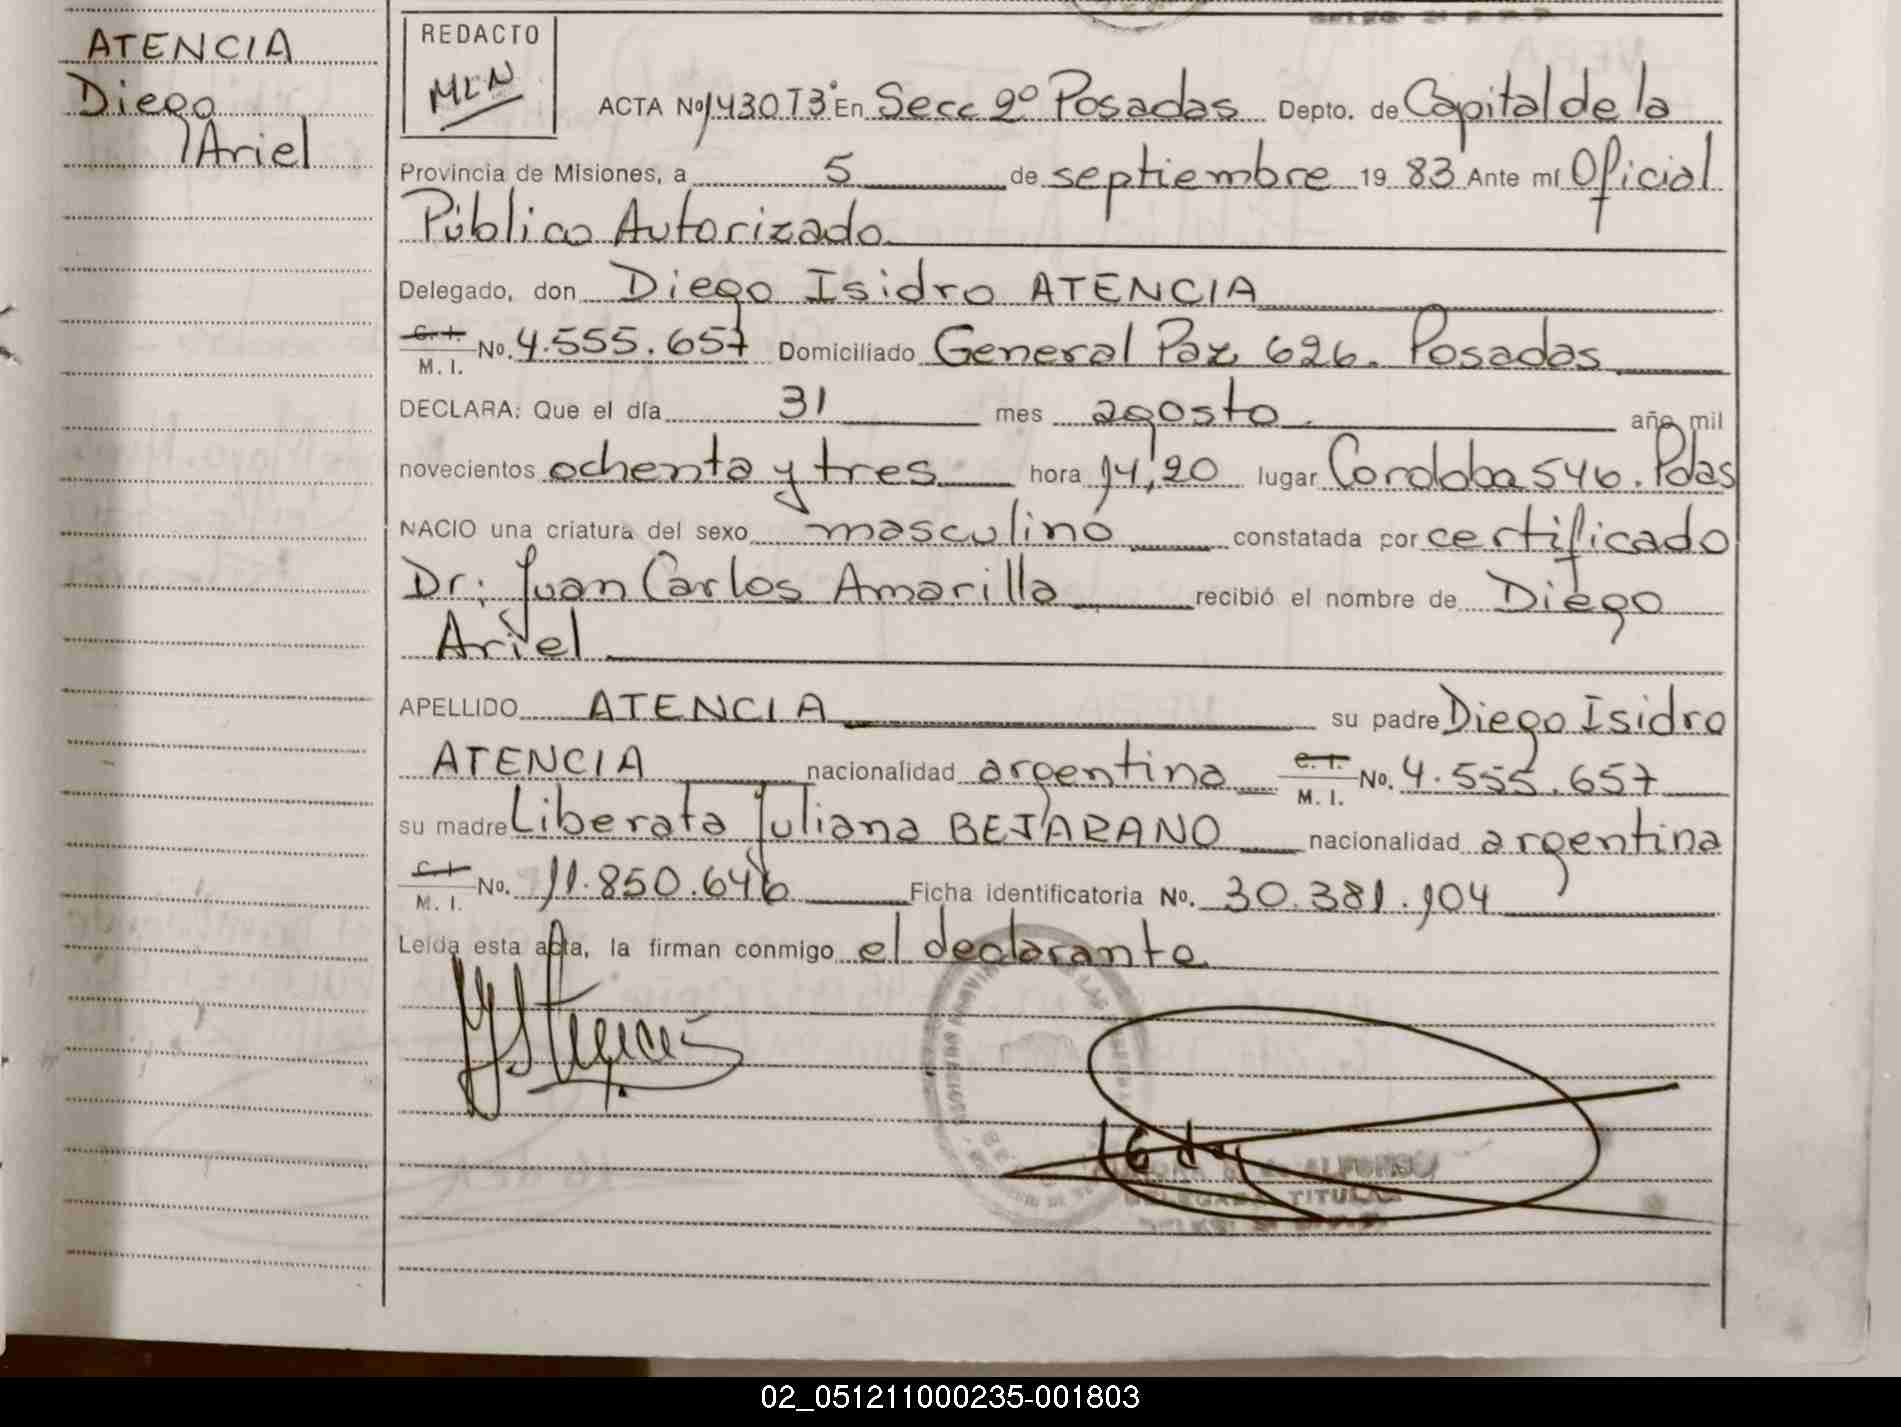 ATENCIA
Diego
Ariel
REDACTO
MLN
ACTA No 1430 T3° En Secc 2° Posadas Depto. de Capital de la
Provincia de Misiones, a 5 de septiembre 19 83 Ante mí Oficial
Público Autorizado
Delegado, don Diego Isidro ATENCIA
C. I.
M. I. No. 4.555.657 Domiciliado General Paz 626. Posadas
DECLARA: Que el día 31 mes agosto año mil
novecientos ochenta y tres hora 14,20 lugar Cordoba 546. Pdas
NACIO una criatura del sexo masculino constatada por certificado
Dr; Juan Carlos Amarilla recibió el nombre de Diego
Ariel
APELLIDO ATENCIA su padre Diego Isidro
ATENCIA nacionalidad argentina C. I.
M. I. No. 4.555.657
su madre Liberata Juliana BEJARANO nacionalidad argentina
C. I.
M. I. No. 11.850.646 Ficha identificatoria No. 30.381.104
Leída esta acta, la firman conmigo el declarante
ALFONSO
DELEGADA TITULAR
02_051211000235-001803